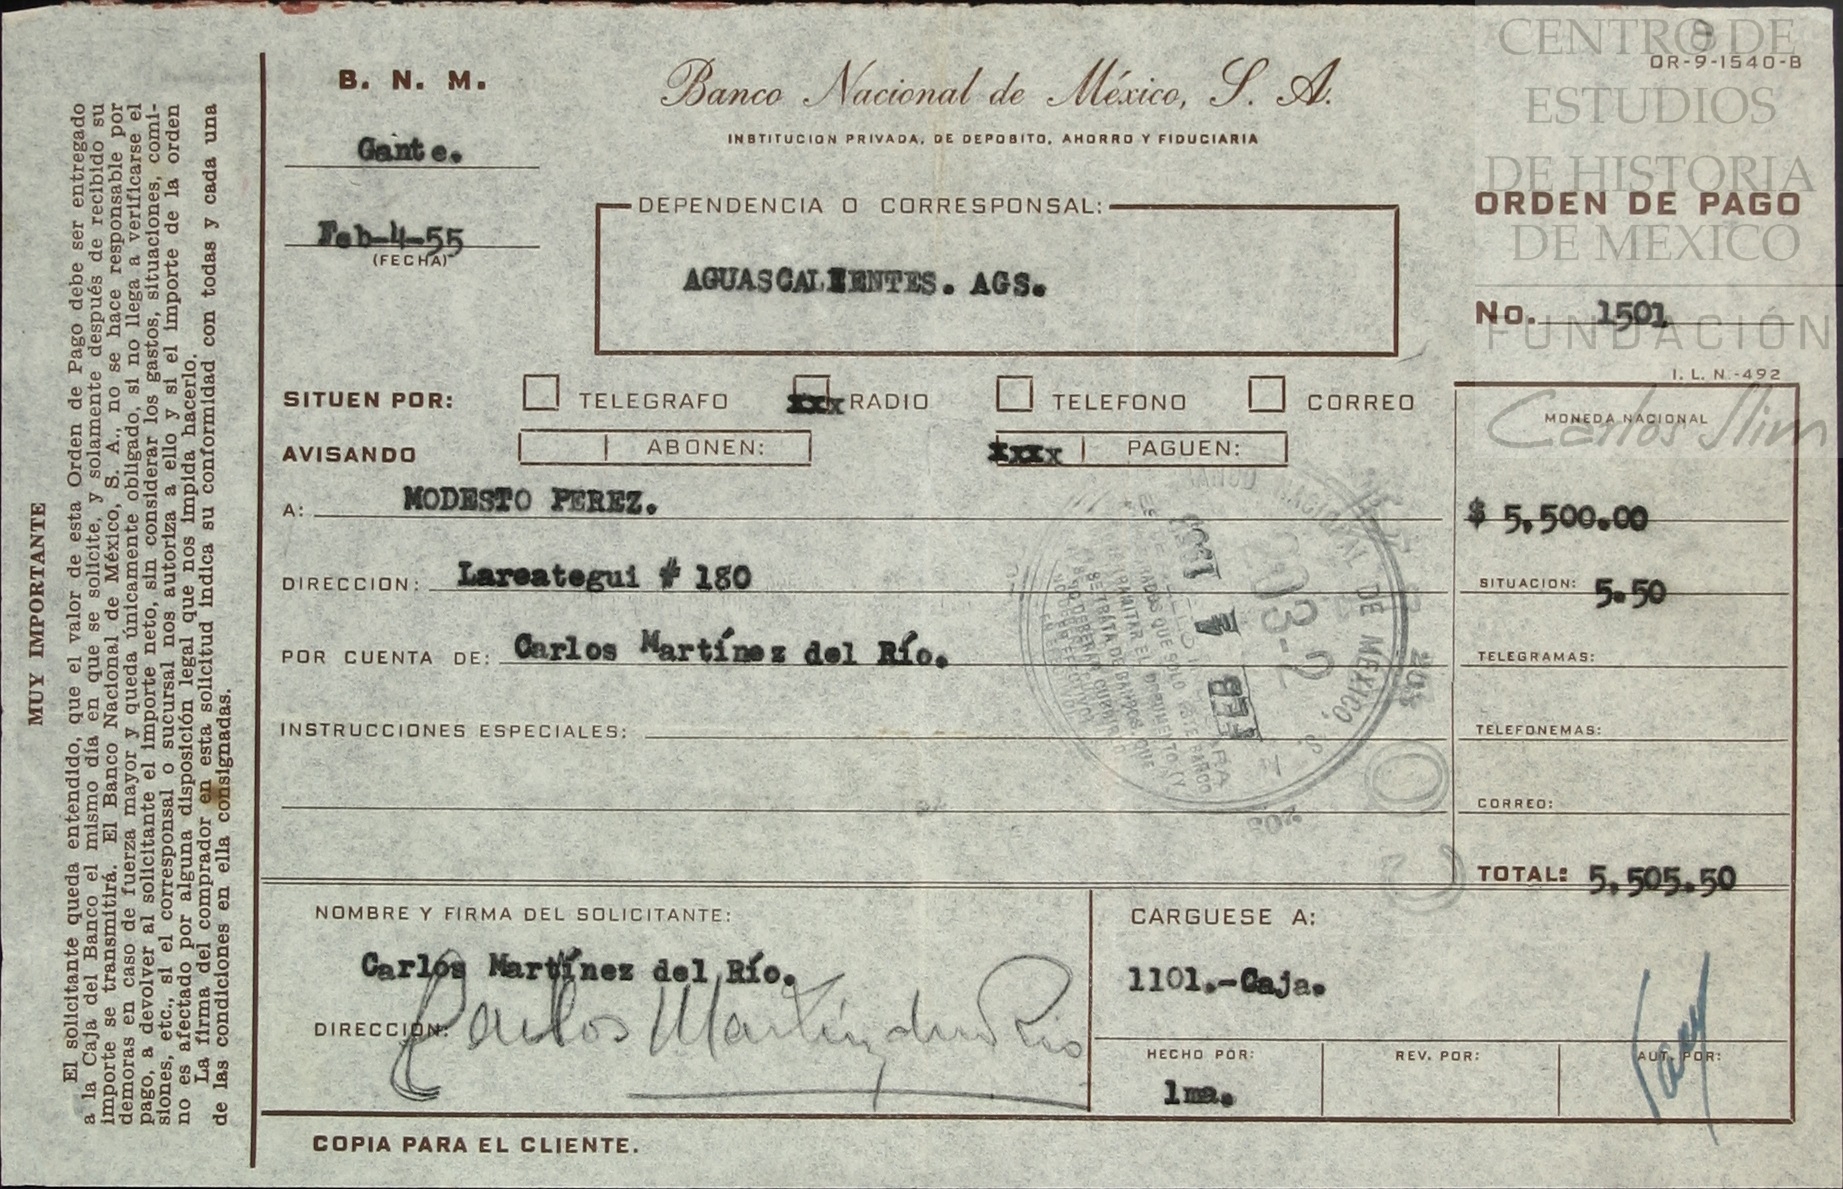 CENTRO DE
ESTUDIOS
DE HISTORIA
DE MEXICO
FUNDACIÓN
Carlos Slim
8
OR-9-1540-B
B. N. M.
Banco Nacional de México, S. A.
INSTITUCION PRIVADA, DE DEPOSITO, AHORRO Y FIDUCIARIA
Gante.
Feb-4-55
(FECHA)
DEPENDENCIA O CORRESPONSAL:
AGUASCALIENTES. AGS.
ORDEN DE PAGO
No. 1501
I. L. N.-492
SITUEN POR: TELEGRAFO xxx RADIO TELEFONO CORREO
AVISANDO ABONEN: xxxx PAGUEN:
A: MODESTO PEREZ.
DIRECCION: Lareategui # 130
POR CUENTA DE: Carlos Martínez del Río.
INSTRUCCIONES ESPECIALES:
MONEDA NACIONAL
$ 5,500.00
SITUACION: 5.50
TELEGRAMAS:
TELEFONEMAS:
CORREO:
TOTAL: 5,505.50
BANCO NACIONAL DE MEXICO, S. A.
203-2
NOMBRE Y FIRMA DEL SOLICITANTE:
Carlos Martínez del Río.
DIRECCION:
Carlos Martínez del Rio
CARGUESE A:
1101.-Caja.
HECHO POR: REV. POR: AUT. POR:
lma.
COPIA PARA EL CLIENTE.
MUY IMPORTANTE
El solicitante queda entendido, que el valor de esta Orden de Pago debe ser entregado
a la Caja del Banco el mismo día en que se solicite, y solamente después de recibido su
importe se transmitirá. El Banco Nacional de México, S. A., no se hace responsable por
demoras en caso de fuerza mayor y queda únicamente obligado, si no llega a verificarse el
pago, a devolver al solicitante el importe neto, sin considerar los gastos, situaciones, comi-
siones, etc., si el corresponsal o sucursal nos autoriza a ello y si el importe de la orden
no es afectado por alguna disposición legal que nos impida hacerlo.
La firma del comprador en esta solicitud indica su conformidad con todas y cada una
de las condiciones en ella consignadas.